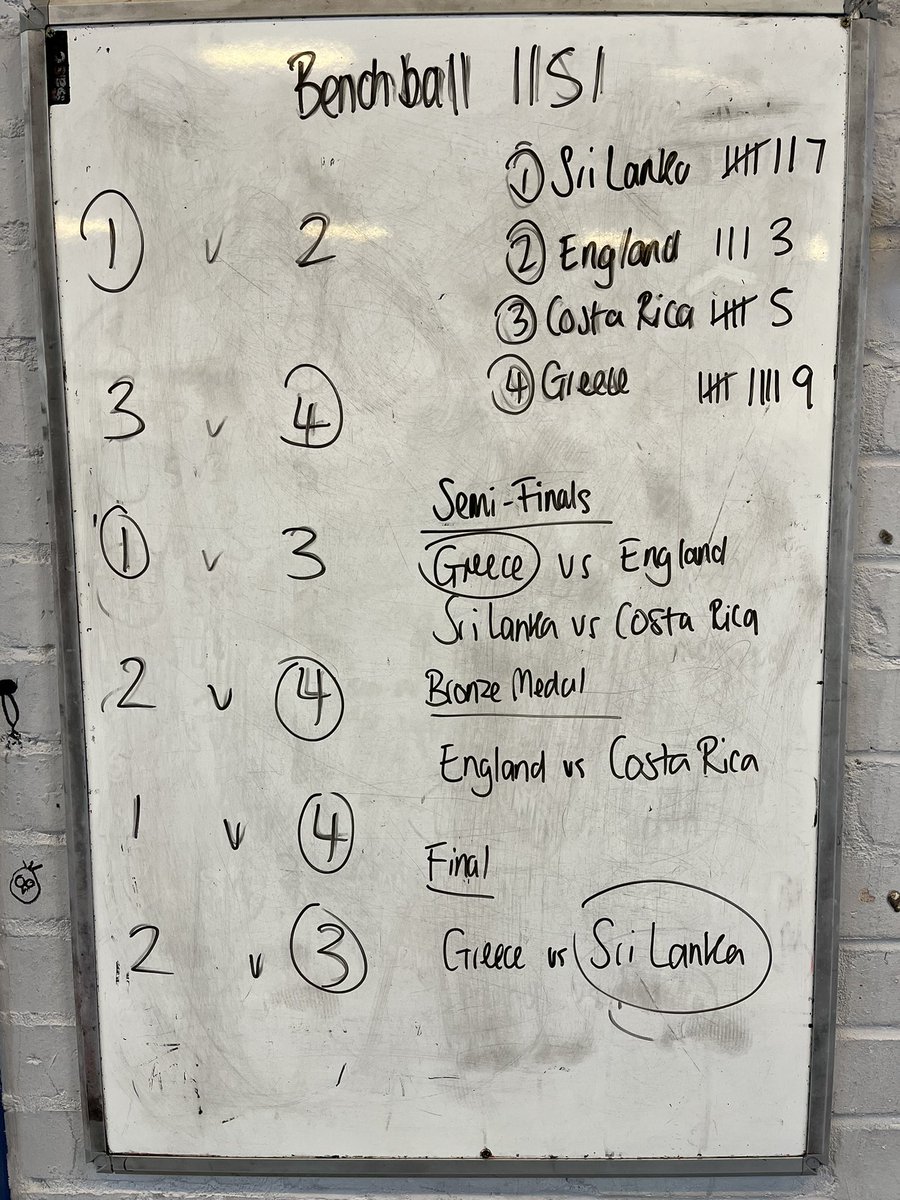 Benchball 11S1
1 v 2
3 v 4
1 v 3
2 v 4
1 v 4
2 v 3
1 Sri Lanka |||| || 7
2 England ||| 3
3 Costa Rica |||| 5
4 Greece |||| |||| 9
Semi-Finals
Greece vs England
Sri Lanka vs Costa Rica
Bronze Medal
England vs Costa Rica
Final
Greece vs Sri Lanka